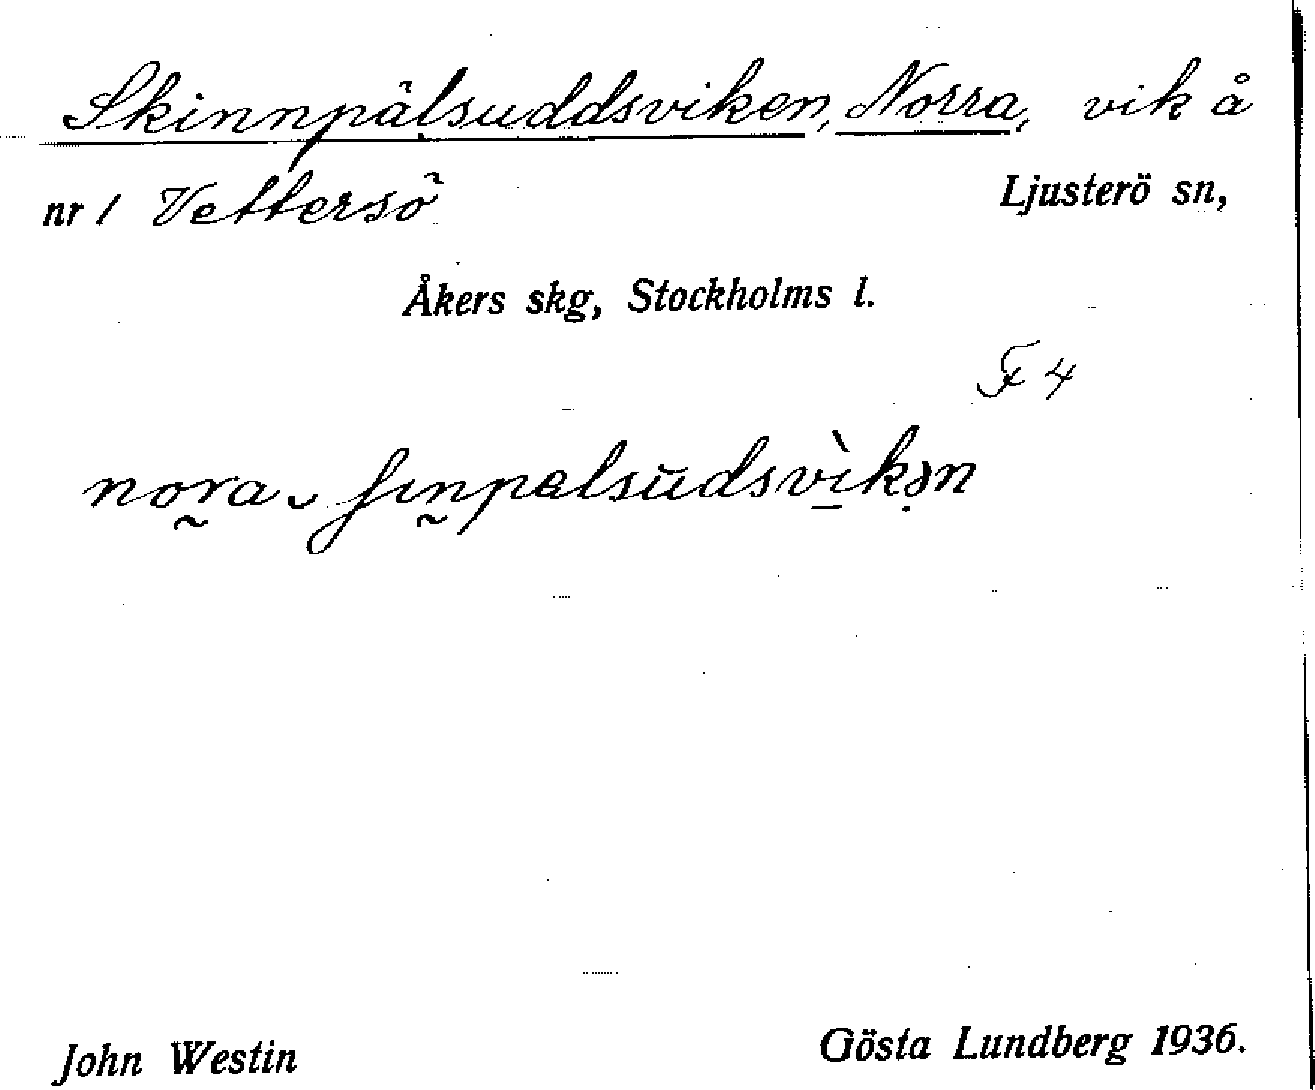 Skinnpälsuddsviken, Norra, vik å
nr 1 Vettersö Ljusterö sn,
Åkers skg, Stockholms l.
F 4
no̰ra ʃɪn̰pælsŭdsvì̠kən
John Westin Gösta Lundberg 1936.